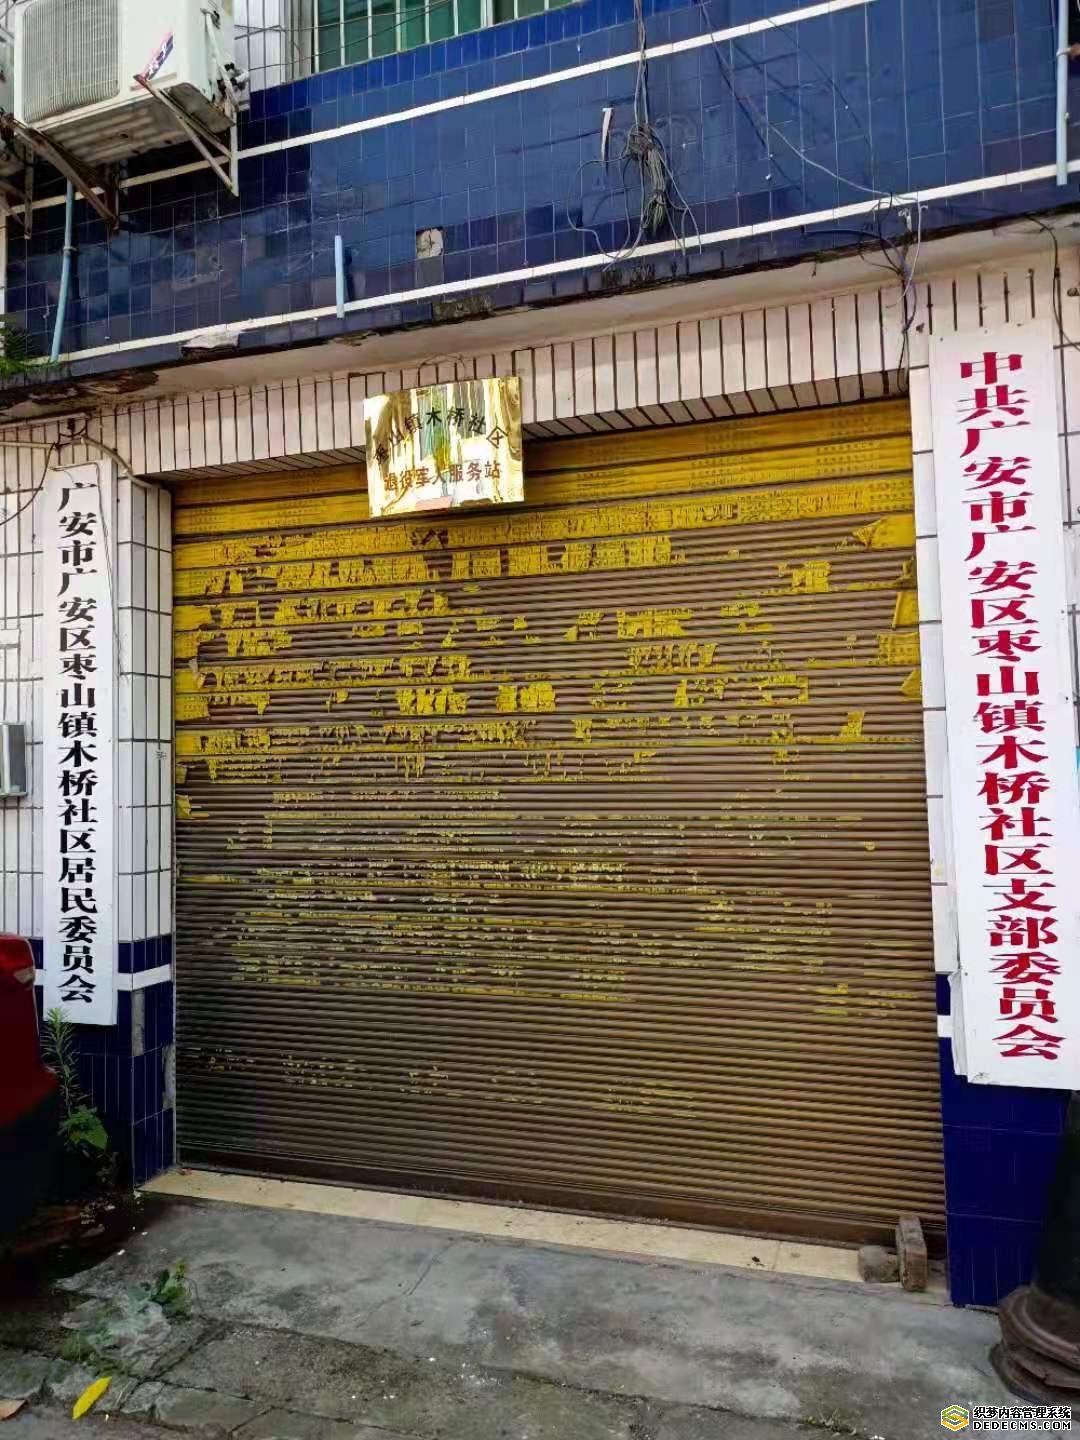 枣山镇木桥社区
退役军人服务站
广安市广安区枣山镇木桥社区居民委员会
中共广安市广安区枣山镇木桥社区支部委员会
织梦内容管理系统
DEDECMS.COM